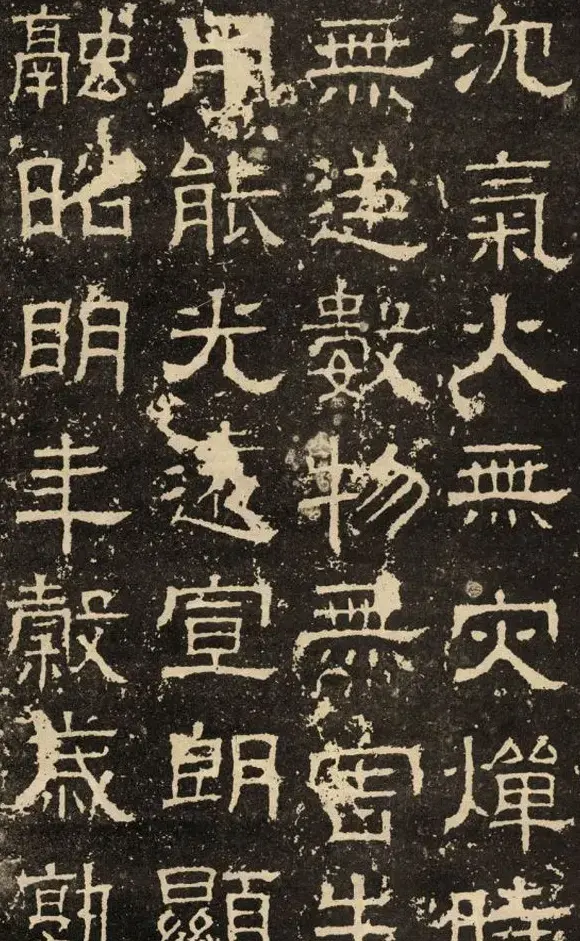 沈氣火無灾燀時
無逆數物無害生
用能光遠宣朗顯
融昭明年穀歲熟